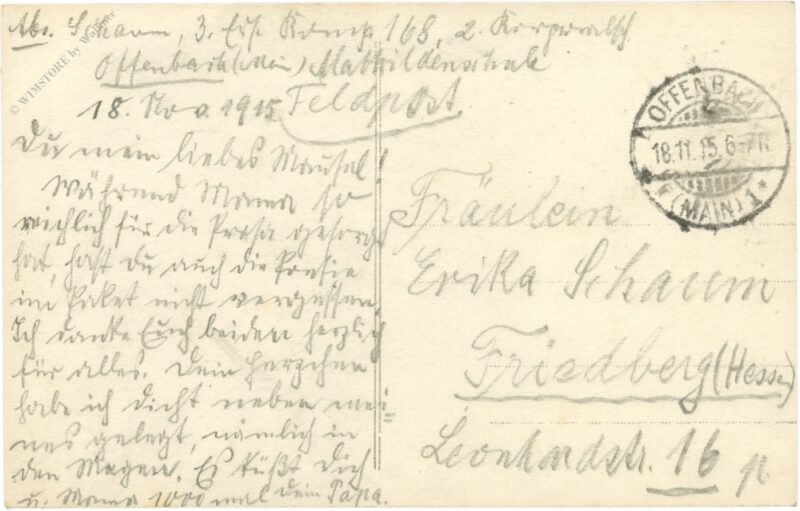 Abs. Schaum, 3. Ers. Komp. 168, 2. Korporalsch
Offenbach (Main) Mathildenschule
18. Nov. 1915 Feldpost
Du mein liebes Mausal!
Während Mama so
reichlich für die Prosa gesorgt
hat, hast Du auch die Poesie
im Paket nicht vergessen.
Ich danke Euch beiden herzlich
für alles. Dein Herzchen
habe ich dicht neben mei-
nes gelegt, nämlich in
den Magen. Es küßt Dich
u. Mama 1000 mal Dein Papa.
Fräulein
Erika Schaum
Friedberg (Hessen)
Leonhardstr. 16 p.
OFFENBACH
18.11.15. 6-7N
(MAIN) 1
© WIMSTORE by Waldner